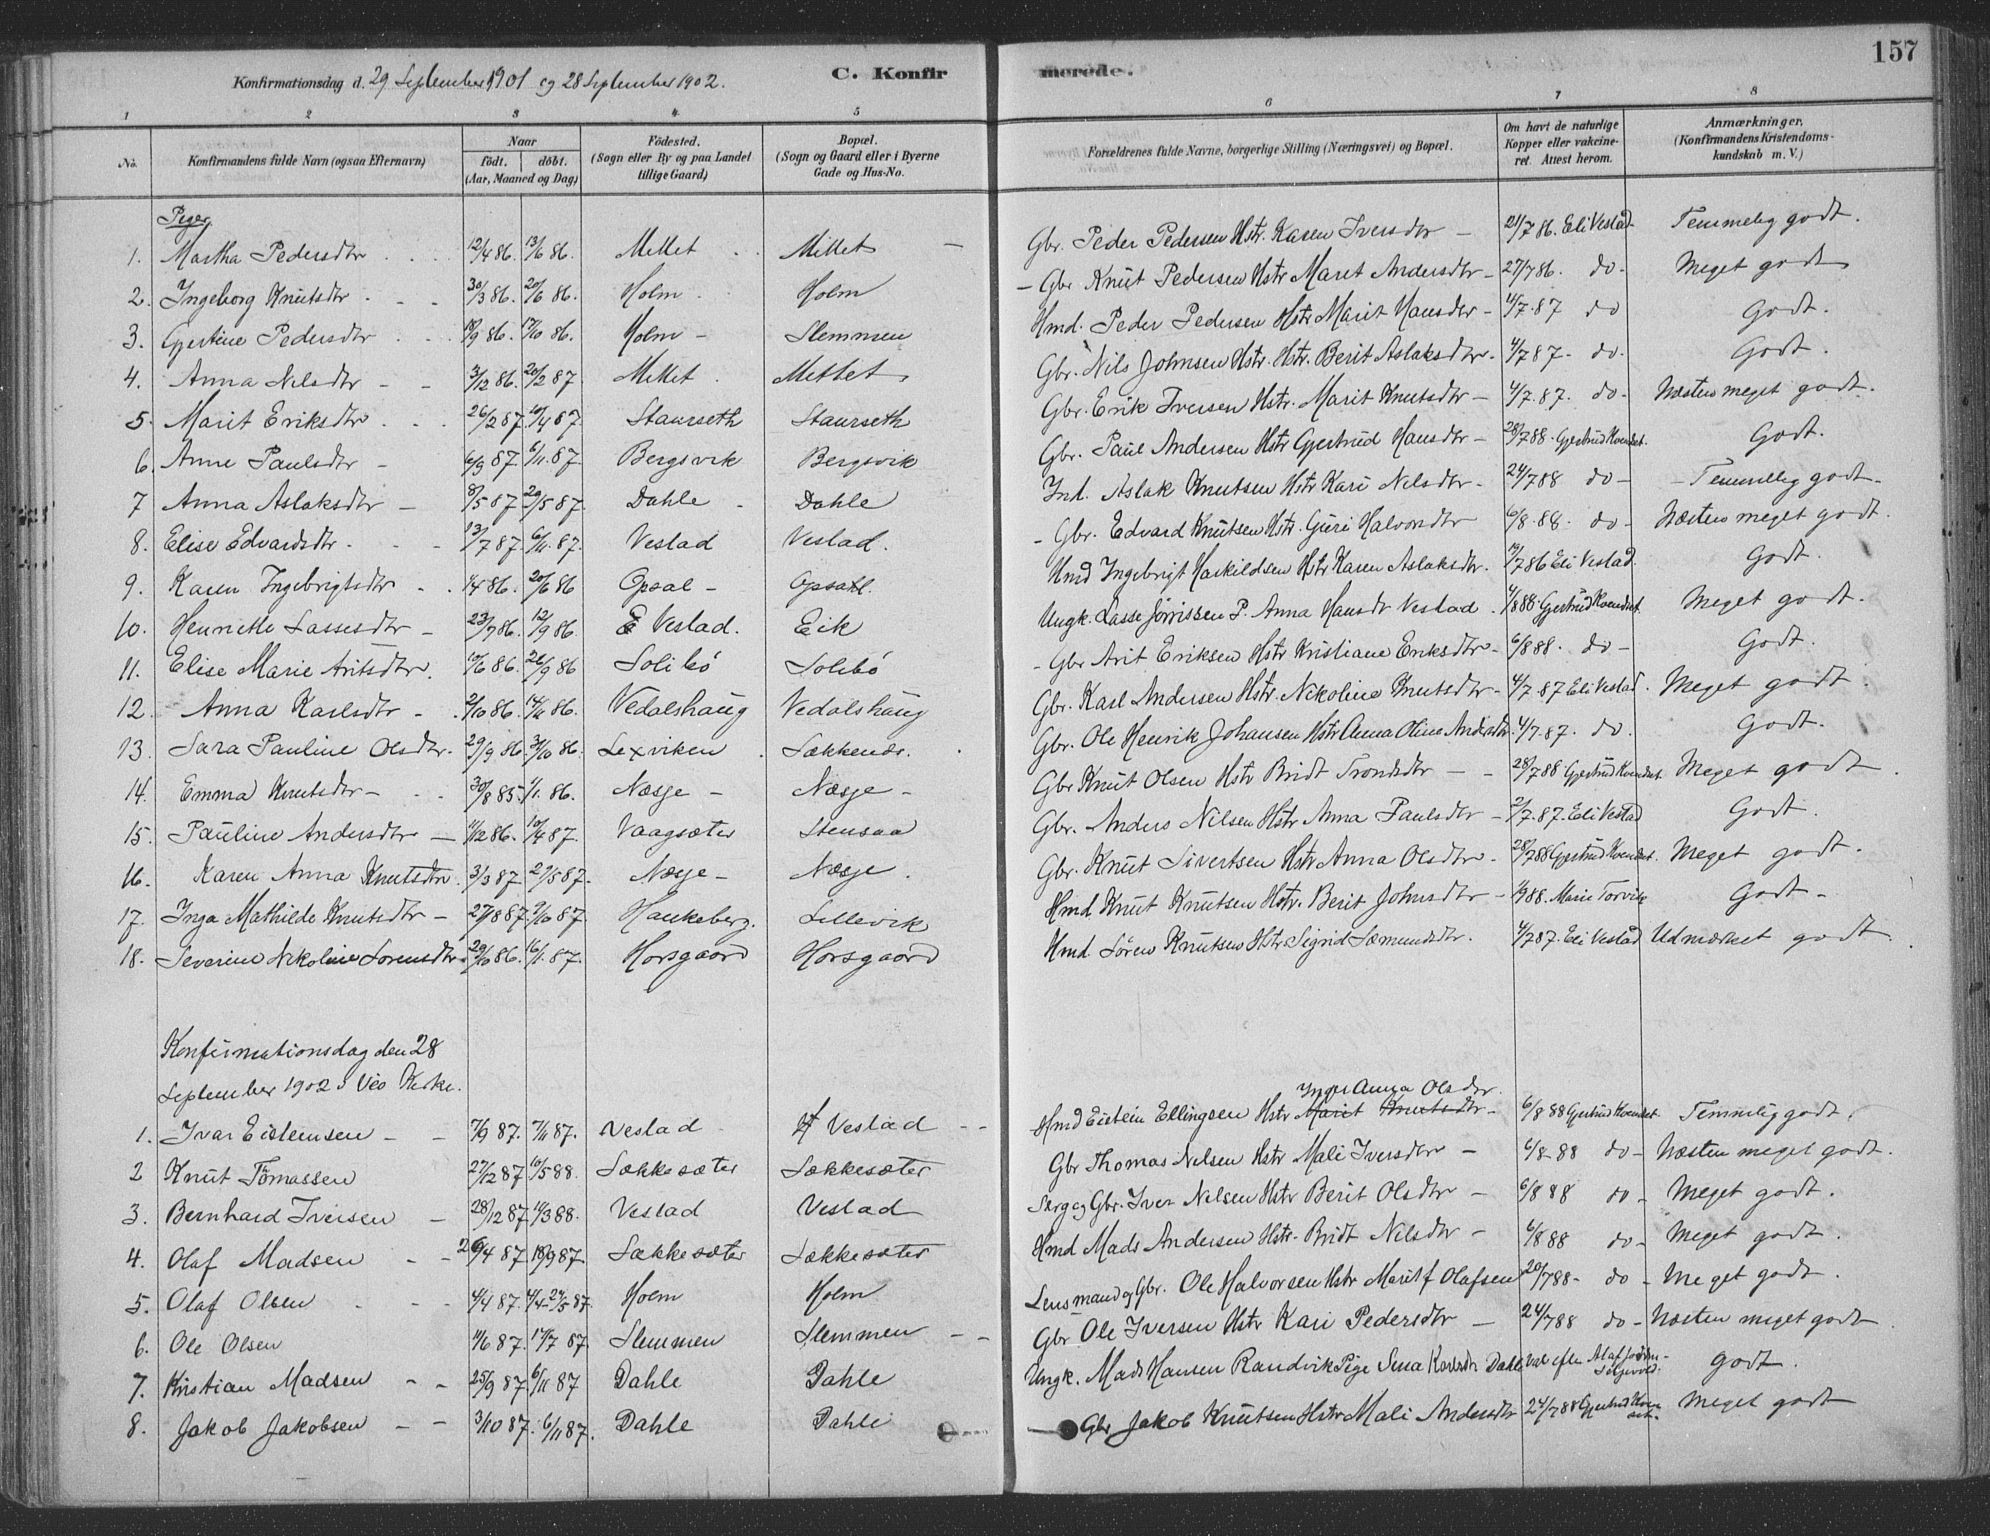 157
Konfirmationsdag d. 29 September 1901 og 28 September 1902. C. Konfirmerede.
1 2 3 4 5 6 7 8
No. Konfirmandens fulde Navn (ogsaa Efternavn) Naar födt. döbt. (Aar, Maaned og Dag) Födested. (Sogn eller By og paa Landet tillige Gaard) Bopæl. (Sogn og Gaard eller i Byerne Gade og Hus-No. Forældrenes fulde Navne, borgerlige Stilling (Næringsvei) og Bopæl. Om havt de naturlige Kopper eller vakcineret. Attest herom. Anmærkninger. (Konfirmandens Kristendomskundskab m. V.)
Piger
1. Martha Pedersdtr 12/4 86. 13/6 86. Mittet Mittet Gbr. Peder Pedersen Hstr. Karen Iversdtr 21/7 86. Eli Vestad Temmelig godt.
2. Ingeborg Knutsdtr 30/3 86. 20/6 86. Holm Holm Gbr Knut Pedersen Hstr Marit Andersdtr 27/7 86. do Meget godt
3. Gjertine Pedersdtr 18/9 86. 17/10 86. Holm Slemmen Hmd. Peder Pedersen Hstr Marit Hansdtr 4/7. 87 do Godt.
4. Anna Nilsdtr 3/12 86. 20/2 87. Mittet Mittet Gbr. Nils Johnsen Hstr. Hstr. Berit Aslaksdtr 4/7 87. do. Godt.
5. Marit Eriksdtr 26/2 87. 10/4 87. Staurseth Staurseth Gbr. Erik Iversen Hstr. Marit Knutsdtr 4/7. 87. do Næsten meget godt.
6. Anne Paulsdtr 6/9 87. 6/11. 87. Bergsvik Bergsvik Gbr. Paul Andersen Hstr Gjertrud Hansdtr 28/7 88. Gjertrud Hvendset. Godt.
7 Anna Aslaksdtr 8/5 87 29/5 87. Dahle Dahle Ind. Aslak Knutsen Hstr Kari Nilsdtr 24/7 88 do Temmelig godt
8. Elise Edvardsdtr 13/7 87 6/11. 87. Vestad Vestad. Gbr. Edvard Knutsen Hstr. Guri Halvorsdtr 6/8. 88. do Næsten meget godt.
9. Karen Ingebrigtsdtr 1/4 86. 20/6 86 Opsal Opsahl. Hmd Ingebrigt Haskildsen Hstr Karen Aslaksdtr. 19/7 86 Eli Vestad. Godt.
10. Henriette Lassesdtr 23/7 86. 12/9 86. E Vestad. Eik Ungk. Lasse Jørrissen P. Anna Hansdr Vestad 4/8 88 Gjertrud Hvendset. Meget godt.
11. Elise Marie Aritsdtr. 10/6 86. 26/9 86 Solibö Solibö Gbr Arit Eriksen Hstr Kristiane Eriksdtr 6/8 88. do Godt.
12. Anna Karlsdtr 2/10 86. 14/11 86. Vedalshaug Vedalshaug Gbr. Karl Andersen Hstr. Nikoline Knutsdtr 4/7. 87 Eli Vestad. Meget godt.
13. Sara Pauline Olsdtr. 29/9 86. 31/10 86. Lexviken Sækkends. Gbr. Ole Henrik Johansen Hstr Anna Oline Andersdtr 4/7. 87. do. Godt.
14. Emma Knutsdtr 30/8 85. 1/1. 86. Næsje Næsje Gbr Knut Olsen Hstr Bridt Trondsdtr 28/7 88 Gjertrud Hvendset. Meget godt
15. Pauline Andersdtr 11/12 86. 10/4 87. Vaagsæter Stensaa Gbr. Anders Nilsen Hstr Anna Paulsdtr 2/7. 87. Eli Vestad Godt.
16. Karen Anna Knutsdtr. 3/3 87. 29/5 87. Næsje Næsje. Gbr. Knut Sivertsen Hstr Anna Olsdtr 28/7 88 Gjertrud Hvendset. Meget godt.
17. Inga Mathilde Knutsdtr 27/8 87. 9/10 87. Haukeberg. Lillevik Hmd Knut Knutsen Hstr. Berit Johnsdtr 1/9 88. Marie Torvik Godt
18. Severine Nikoline Sørensdtr 29/10 86. 16/1. 87. Horsgaard Horsgaard Hmd. Sören Knutsen Hstr Sigrid Sæmundsdtr. 4/7 87. Eli Vestad Udmærket godt.
Konfirmationsdag den 28
September 1902 i Veø Kirke.
Inger Anna Olsdtr.
1. Ivar Eisteinsen 7/9 87. 7/11 87. Vestad Y Vestad Hmd Eistein Ellingsen Hstr Marit Knutsdtr 6/8 88 Gjertrud Hvendset. Temmelig godt.
2 Knut Tomassen 27/12 87 10/5 88. Sækkesæter Sækkesæter Gbr Thomas Nilsen Hstr Mali Iversdtr 6/8 88 do Næsten meget godt.
3. Bernhard Iversen 28/12 87. 11/3 88. Vestad Vestad Serg og Gbr. Iver Nilsen Hstr Berit Olsdtr 6/8 88 do Meget godt.
4. Olaf Madsen 26/4 87 18/9 87 Sækkesæter Sækkesæter Hmd Mads Andersen Hstr. Bridt Nilsdtr 6/8 88 do Meget godt.
5. Olaf Olsen 4/4 87. 4/4-29/5 87. Holm Holm Lensmand og Gbr. Ole Halvorsen Hstr Marit f Olafsen 20/7 88 do Meget godt.
6. Ole Olsen 11/6 87. 17/7 87. Slemmen Slemmen Gbr Ole Iversen Hstr Kari Pedersdtr 24/7 88 do Næsten meget godt
7. Kristian Madsen 25/9 87. 6/11 87 Dahle Dahle Ungk. Mads Hansen Randvik Pige Sina Karlsdtr Dahle Vac efter godt.
8. Jakob Jakobsen 3/10 87. 6/11 87. Dahle Dahle Gbr Jakob Knutsen Hstr Mali Andersdtr 24/7 88 Gjertrud Hvendset. Meget godt